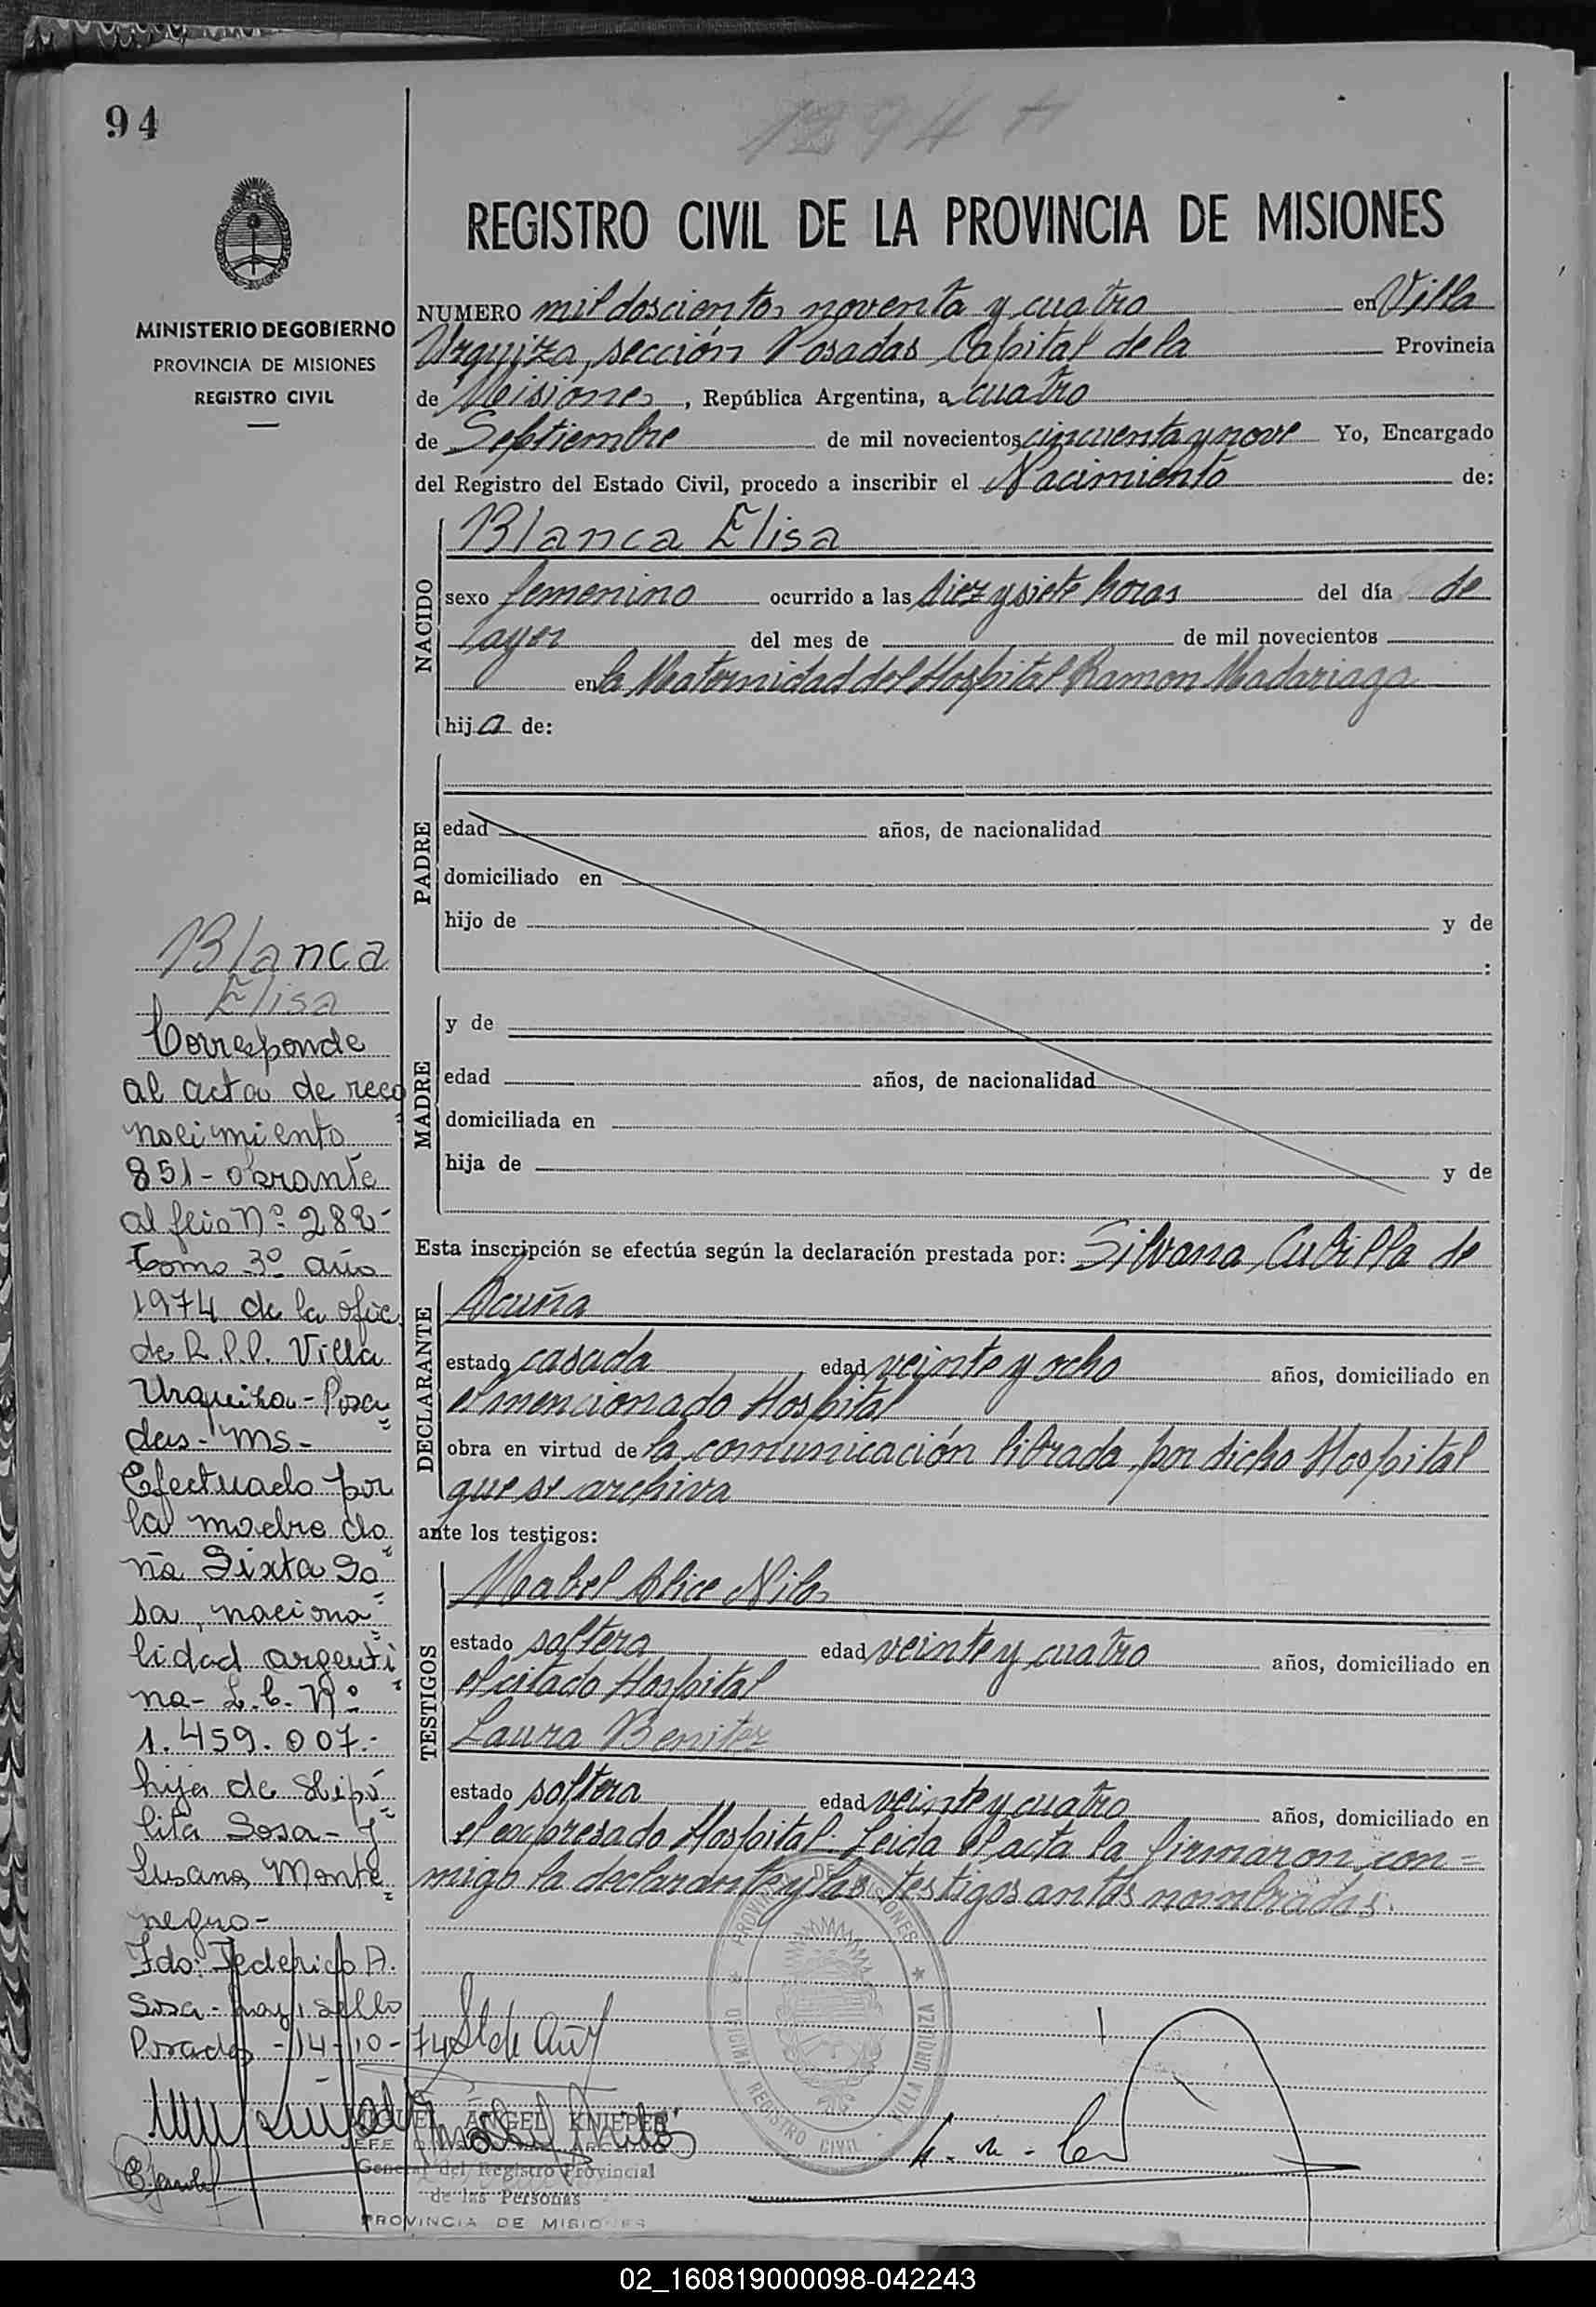 94
1294 H
MINISTERIO DE GOBIERNO
PROVINCIA DE MISIONES
REGISTRO CIVIL
REGISTRO CIVIL DE LA PROVINCIA DE MISIONES
NUMERO mil doscientos noventa y cuatro en Villa
Urquiza, sección Posadas Capital de la Provincia
de Misiones, República Argentina, a cuatro
de Septiembre de mil novecientos cincuenta y nove Yo, Encargado
del Registro del Estado Civil, procedo a inscribir el Nacimiento de:
NACIDO
Blanca Elisa
sexo femenino ocurrido a las diez y siete horas del día de
ayer del mes de de mil novecientos
en la Maternidad del Hospital Ramon Madariaga
hija de:
PADRE
edad años, de nacionalidad
domiciliado en
hijo de y de
:
MADRE
y de
edad años, de nacionalidad
domiciliada en
hija de y de
Esta inscripción se efectúa según la declaración prestada por: Silvana Cubilla de
DECLARANTE
Acuña
estado casada edad veinte y ocho años, domiciliado en
el mencionado Hospital
obra en virtud de la comunicación librada por dicho Hospital
que se archiva
ante los testigos:
TESTIGOS
Mabel Alice Niles
estado soltera edad veinte y cuatro años, domiciliado en
el citado Hospital
Laura Benitez
estado soltera edad veinte y cuatro años, domiciliado en
el expresado Hospital. Leida el acta la firmaron con=
migo la declarante y los testigos antes nombrados.
Blanca
Elisa
Corresponde
al acta de reco
nocimiento
851 - obrante
al folio Nº 282 -
Tomo 3º año
1974 de la ofic
de R.P.P. Villa
Urquiza - Posa
das - Ms -
Efectuado por
la madre do
ña Sixta So
sa, naciona
lidad argenti
na - L.C. Nº
1.459.007.-
hija de Hipó
lita Sosa - y
Susana Monte
negro -
Fdo: Federico A.
Sosa - hay sello
Posadas - 14-10-74
PROVINCIA DE MISIONES
OFICINA REGISTRO CIVIL - VILLA URQUIZA
S de Acuñ
MIGUEL ANGEL KNIEPER
JEFE ARCHIVO
General del Registro Provincial
de las Personas
PROVINCIA DE MISIONES
02_160819000098-042243